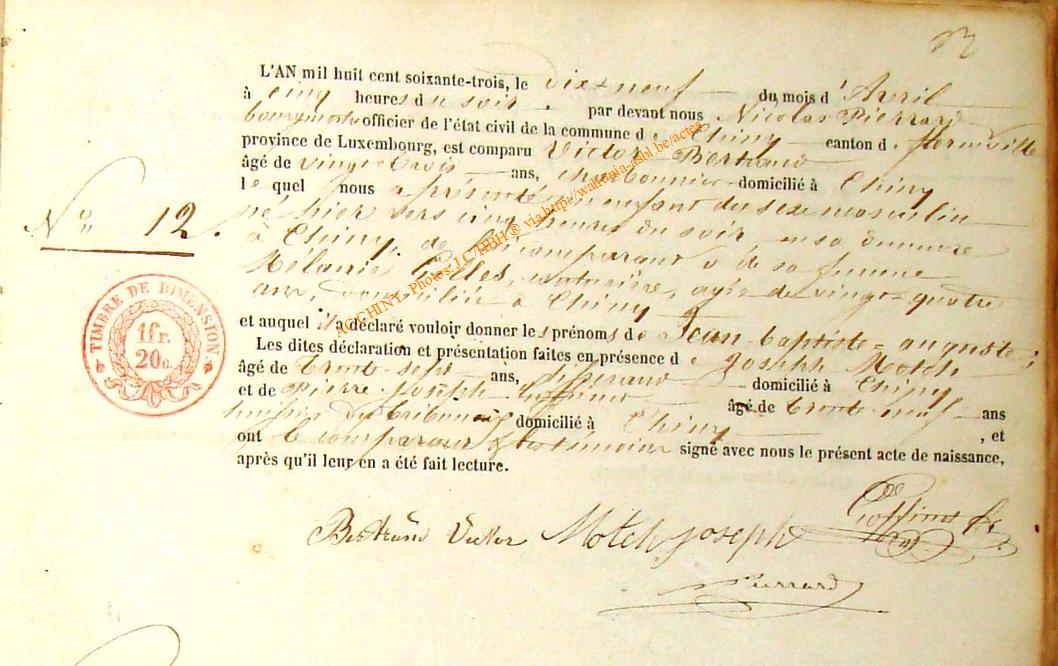 N° 12.
TIMBRE DE DIMENSION.
1fr.
20c.
L'AN mil huit cent soixante-trois, le dix-neuf du mois d'Avril
à cinq heures du soir par devant nous Nicolas Pierrard
bourgmestre officier de l'état civil de la commune de Chiny canton de florenville
province de Luxembourg, est comparu Victor Bertrand
âgé de vingt-trois ans, charbonnier domicilié à Chiny
lequel nous a présenté un enfant du sexe masculin
né hier vers cinq heures du soir, en sa demeure
à Chiny, de lui comparant & de sa femme
Mélanie Gilles, couturière, agée de vingt-quatre
ans, domicilié à Chiny
et auquel il a déclaré vouloir donner les prénoms de Jean-baptiste-auguste;
Les dites déclaration et présentation faites en présence de Joseph Motch,
âgé de trente-sept ans, domicilié à Chiny
et de Pierre-Joseph âgé de trente-neuf ans
domicilié à Chiny, et
ont le comparant & les témoins signé avec nous le présent acte de naissance,
après qu'il leur en a été fait lecture.
Bertrand Victor Motch Joseph
Pierrard
ACCHINY - Photos: J.C/HBH ® via http://wallonia-asbl.be/actes